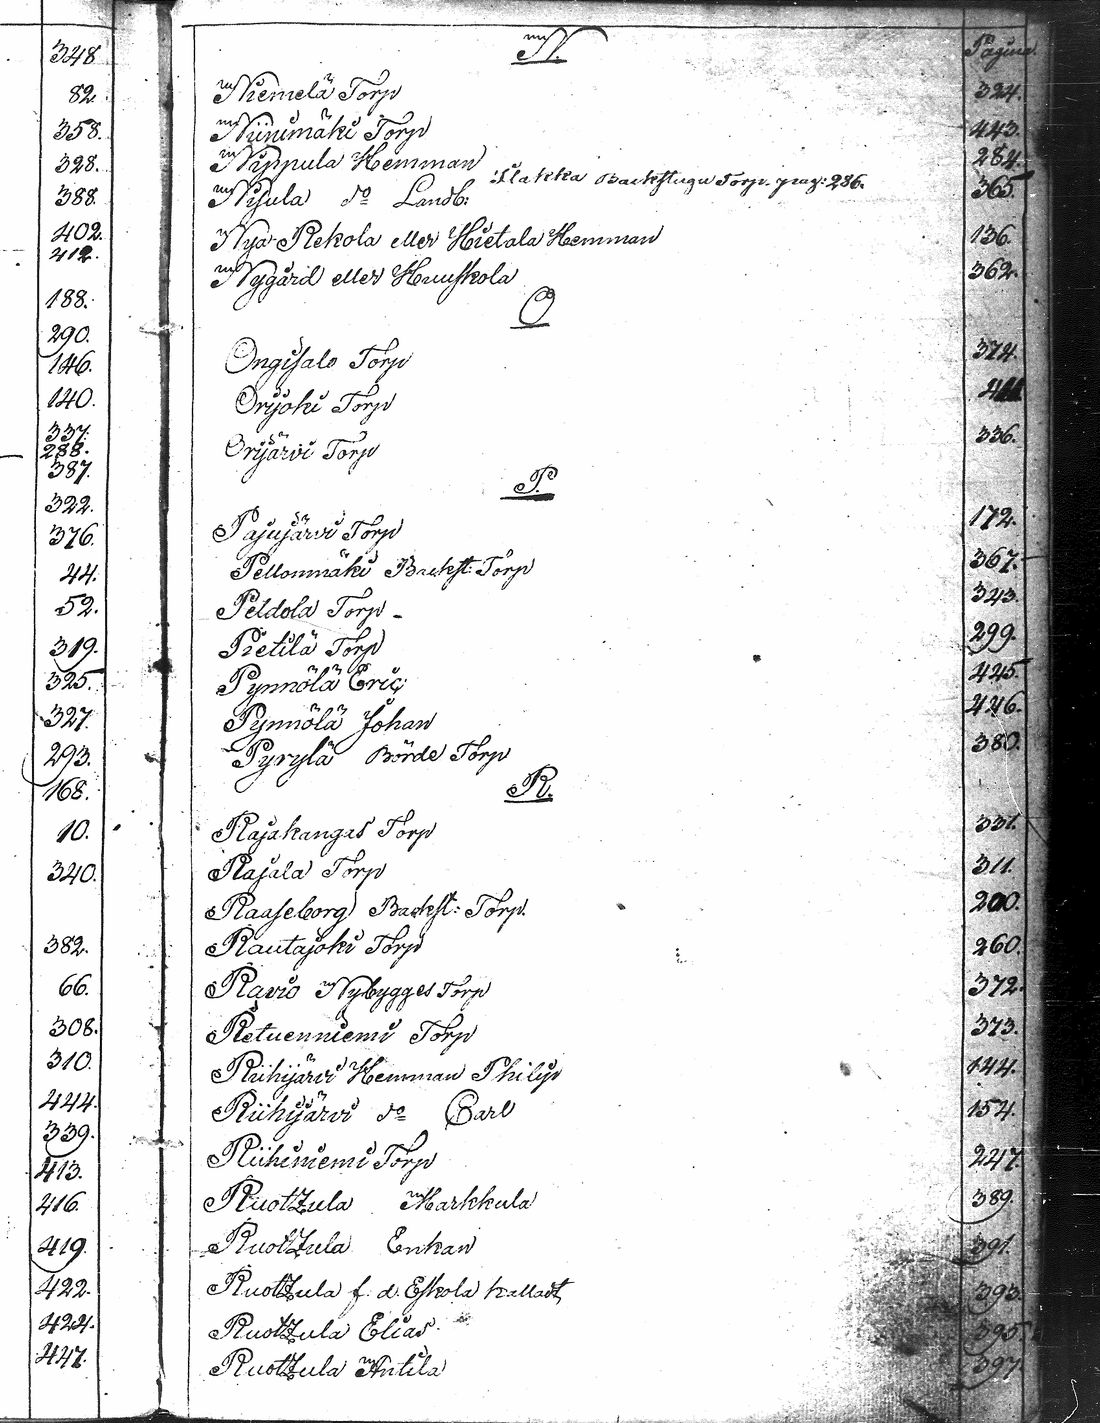 348.
82.
358.
328.
388.
402.
412.
188.
290.
146.
140.
337.
288.
387.
322.
376.
44.
52.
319.
325.
327.
293.
168.
10.
340.
382.
66.
308.
310.
444.
339.
413.
416.
419.
422.
424.
447.
N. Pagina
Niemelä Torp 324.
Niinimäki Torp 443.
Nippula Hemman 284.
Ilakka Backstugu Torp. pag: 286.
Nisula do Landb: 365
Nya Rekola eller Hietala Hemman 136.
Nygård eller Huuskola 362.
O
Ongisalo Torp 374.
Orijoki Torp
Orijärvi Torp 336.
P.
Pajujärvi Torp 172.
Pellonmäki Backst: Torp 367.
Peldola Torp - 343.
Pietilä Torp 299.
Pynnölä Eric 425
Pynnölä Johan 426.
Pyrylä Börde Torp 380.
R.
Rajakangas Torp 331.
Rajala Torp 311.
Raaseborg Backst: Torp. 200.
Rautajoki Torp 260.
Ravio Nybygges Torp 372.
Retuenniemi Torp 373.
Riihijärvi Hemman Philip 144.
Riihijärvi do Carl 154.
Riihiniemi Torp 247.
Ruotzula Markkula 389.
Ruotzula Erikan 391.
Ruotzula f. d. Eskola kalladt 393.
Ruotzula Elias 395
Ruotzula Antila 397